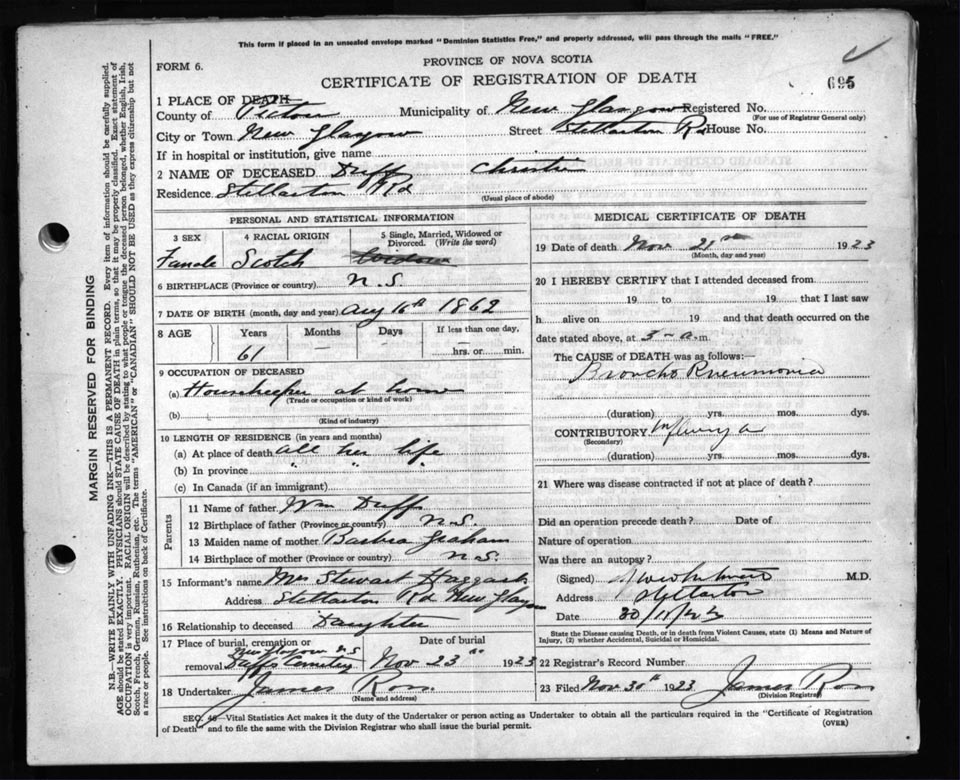 This form if placed in an unsealed envelope marked "Dominion Statistics Free," and properly addressed, will pass through the mails "FREE."
FORM 6.
PROVINCE OF NOVA SCOTIA
CERTIFICATE OF REGISTRATION OF DEATH
695
1 PLACE OF DEATH
County of Pictou Municipality of New Glasgow Registered No.
(For use of Registrar General only)
City or Town New Glasgow Street Stellarton Rd House No.
If in hospital or institution, give name
2 NAME OF DECEASED Duff Christie
Residence Stellarton Rd
(Usual place of abode)
PERSONAL AND STATISTICAL INFORMATION
3 SEX 4 RACIAL ORIGIN 5 Single, Married, Widowed or Divorced. (Write the word)
Scotch Widow
6 BIRTHPLACE (Province or country) N.S.
7 DATE OF BIRTH (month, day and year) Aug 16th 1862
8 AGE Years Months Days If less than one day,
61 — — hrs. or min.
9 OCCUPATION OF DECEASED
(a) Housekeeper at home
(Trade or occupation or kind of work)
(b)
(Kind of industry)
10 LENGTH OF RESIDENCE (in years and months)
(a) At place of death all her life
(b) In province " " "
(c) In Canada (if an immigrant)
Parents
11 Name of father Wm Duff
12 Birthplace of father (Province or country) N.S.
13 Maiden name of mother Barbra Graham
14 Birthplace of mother (Province or country) N.S.
15 Informant's name Mrs Stewart
Address Stellarton Rd New Glasgow
16 Relationship to deceased Daughter
17 Place of burial, cremation or removal New Glasgow N.S Duffs Cemetery Date of burial Nov 23rd 1923
18 Undertaker James Ross
(Name and address)
MEDICAL CERTIFICATE OF DEATH
19 Date of death Nov 21st 1923
(Month, day and year)
20 I HEREBY CERTIFY that I attended deceased from
19 to 19 that I last saw
h alive on 19 and that death occurred on the
date stated above, at 3 - a. m.
The CAUSE of DEATH was as follows:—
Broncho Pneumonia
(duration) yrs. mos. dys.
CONTRIBUTORY Influenza
(Secondary)
(duration) yrs. mos. dys.
21 Where was disease contracted if not at place of death?
Did an operation precede death? Date of
Nature of operation
Was there an autopsy?
(Signed) M.D.
Address Stellarton
Date 30/11/23
State the Disease causing Death, or in death from Violent Causes, state (1) Means and Nature of Injury, (2) whether Accidental, Suicidal or Homicidal.
22 Registrar's Record Number
23 Filed Nov 30th 1923 James Ross
(Division Registrar)
SEC. 46—Vital Statistics Act makes it the duty of the Undertaker or person acting as Undertaker to obtain all the particulars required in the "Certificate of Registration
of Death" and to file the same with the Division Registrar who shall issue the burial permit.
(OVER)
MARGIN RESERVED FOR BINDING
N.B.—WRITE PLAINLY WITH UNFADING INK—THIS IS A PERMANENT RECORD. Every item of information should be carefully supplied.
AGE should be stated EXACTLY. PHYSICIANS should STATE CAUSE OF DEATH in plain terms, so that it may be properly classified. Exact statement of
OCCUPATION is very important. RACIAL ORIGIN will be described by stating to what people or tongue the deceased person belonged, whether English, Irish,
Scotch, French, German, Russian, Ruthenian, etc. The terms "AMERICAN" or "CANADIAN" SHOULD NOT BE USED as they express citizenship but not
a race or people. See instructions on back of Certificate.